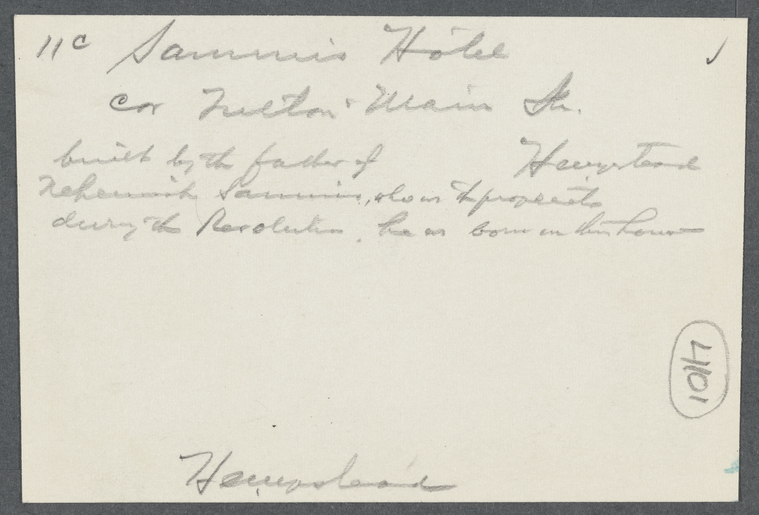 11c Sammis Hotel
cor Fulton & Main Sts.
Hempstead
built by the father of
Nehemiah Sammis, who was the proprietor
during the Revolution. he was born in this house
Hempstead